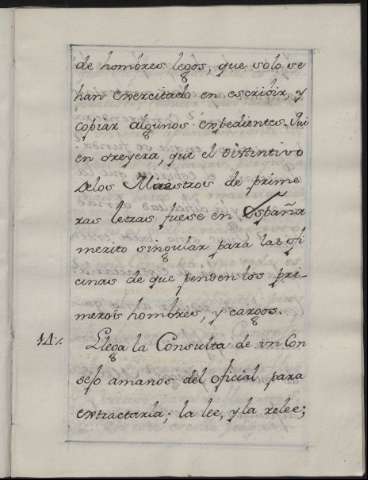 de hombres legos, que solo se
han exercitado en escribir, y
copiar algunos expedientes. Qui
en creyera, que el distintivo
delos Maestros de prime
ras letras fuese en España
merito singular para las ofi
cinas de que penden los pri-
meros hombres, y cargos.
14. Llega la Consulta de un Con
sejo amanos del oficial para
extractarla; la lee, y la relee;